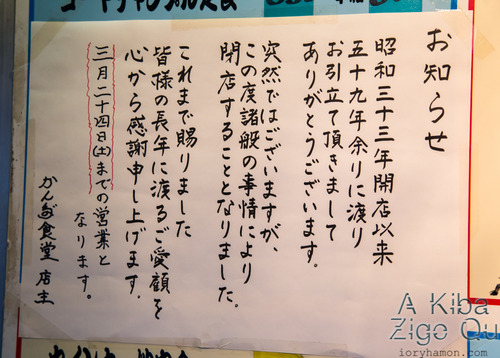 お知らせ
昭和三十三年開店以来
五十九年余りに渡り
お引立て頂きまして
ありがとうございます。
突然ではございますが、
この度諸般の事情により
閉店することとなりました。
これまで賜りました
皆様の長年に渡るご愛顧を
心から感謝申し上げます。
三月二十四日(土)までの営業と
なります。
かんだ食堂 店主
A Kiba
Zigo Ou
ioryhamon.com